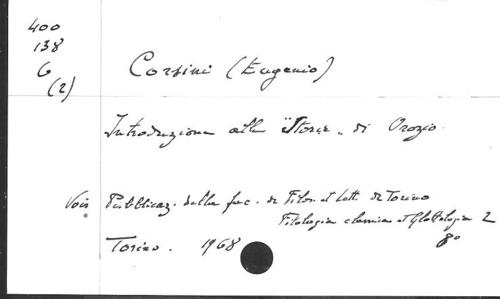 400
138
6
(2)
Corsini (Eugenio)
Introduzione alle "Storie" di Orozio.
Vois Pubblicaz. della fac. di Filos. et Lett. di Torino
Filologia classica et Glottologia 2
Torino. 1968 8°